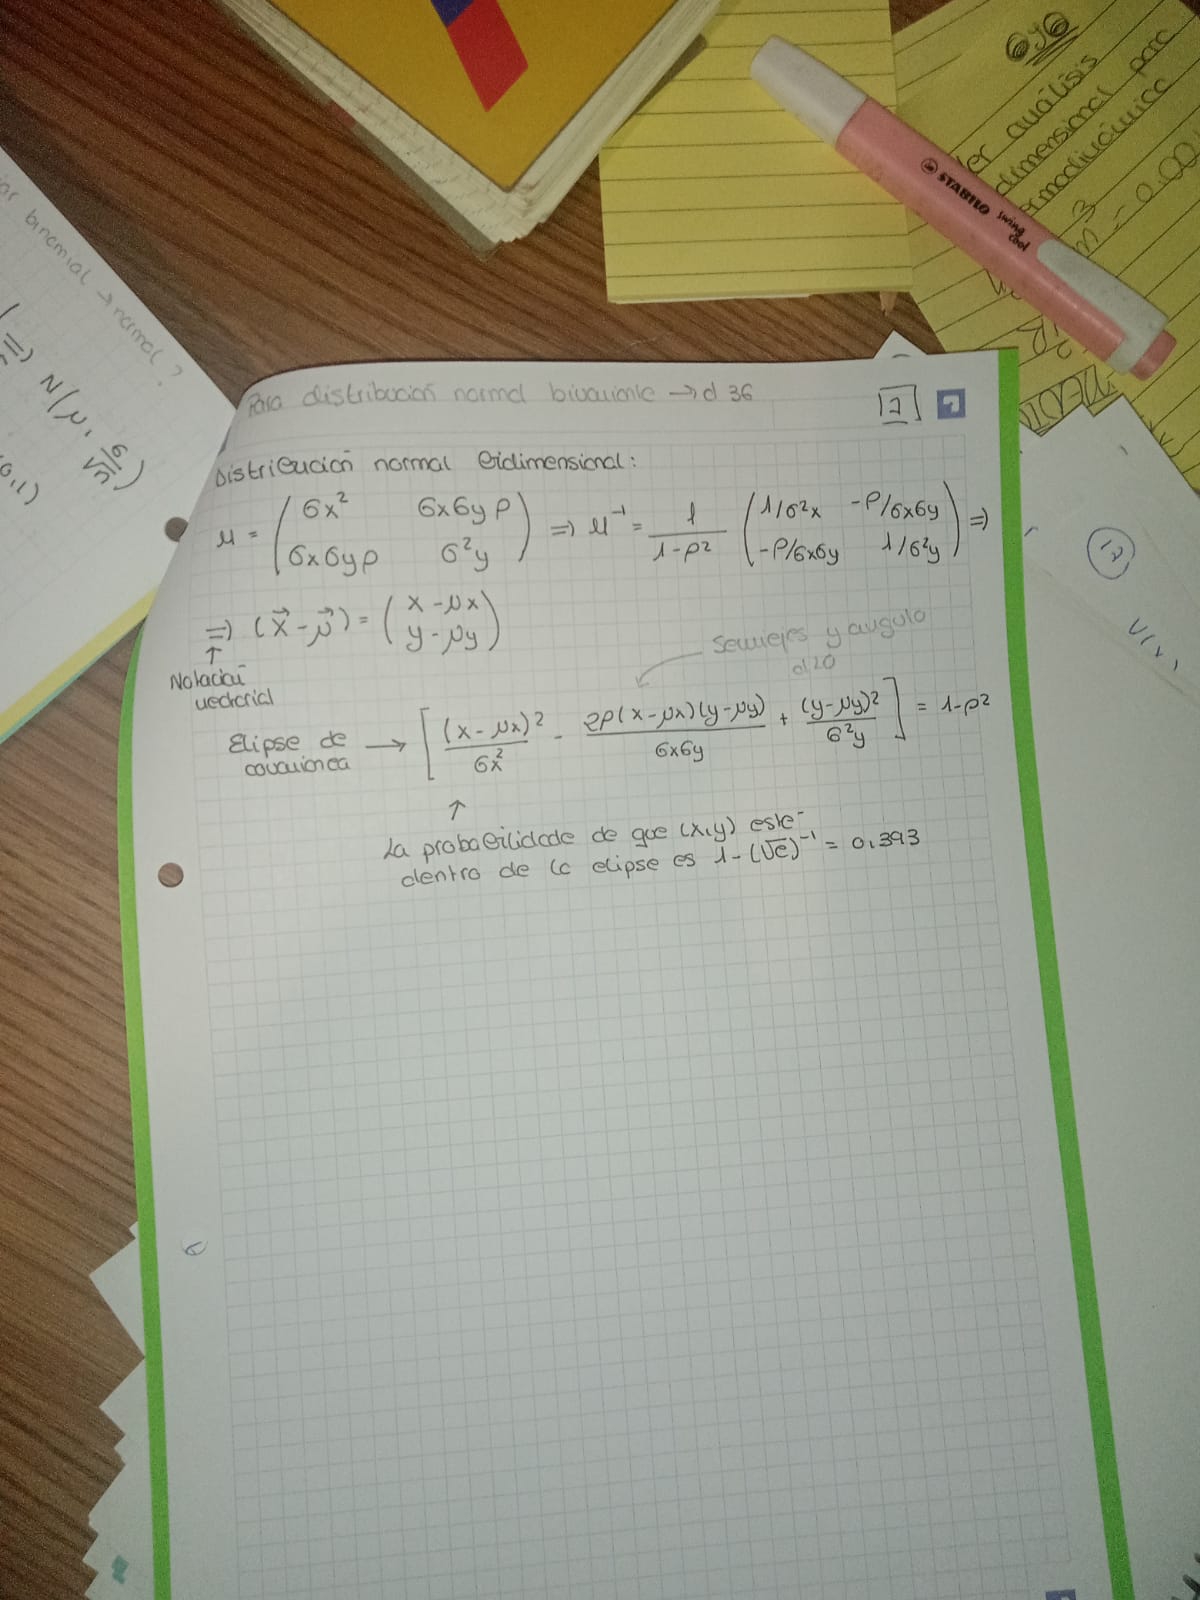 Para distribución normal bivariante → d 36
7
Distribución normal bidimensional:
μ = ( σx² σxσyρ ; σxσyρ σ²y ) => μ⁻¹ = 1/(1-ρ²) ( 1/σ²x -ρ/σxσy ; -ρ/σxσy 1/σ²y ) =>
=> (x⃗ - μ⃗) = ( x - μx ; y - μy )
↑
Notación
vectorial
Semiejes y angulo
d20
Elipse de
covarianza → [ (x - μx)²/σx² - 2ρ(x - μx)(y - μy)/σxσy + (y - μy)²/σ²y ] = 1-ρ²
↑
La probabilidade de que (x,y) este
dentro de la elipse es 1-(√e)⁻¹ = 0,393
binomial → normal?
N(μ, σ/√n)
0,1)
análisis
dimensional par
= 0.00
STABILO swing cool
12